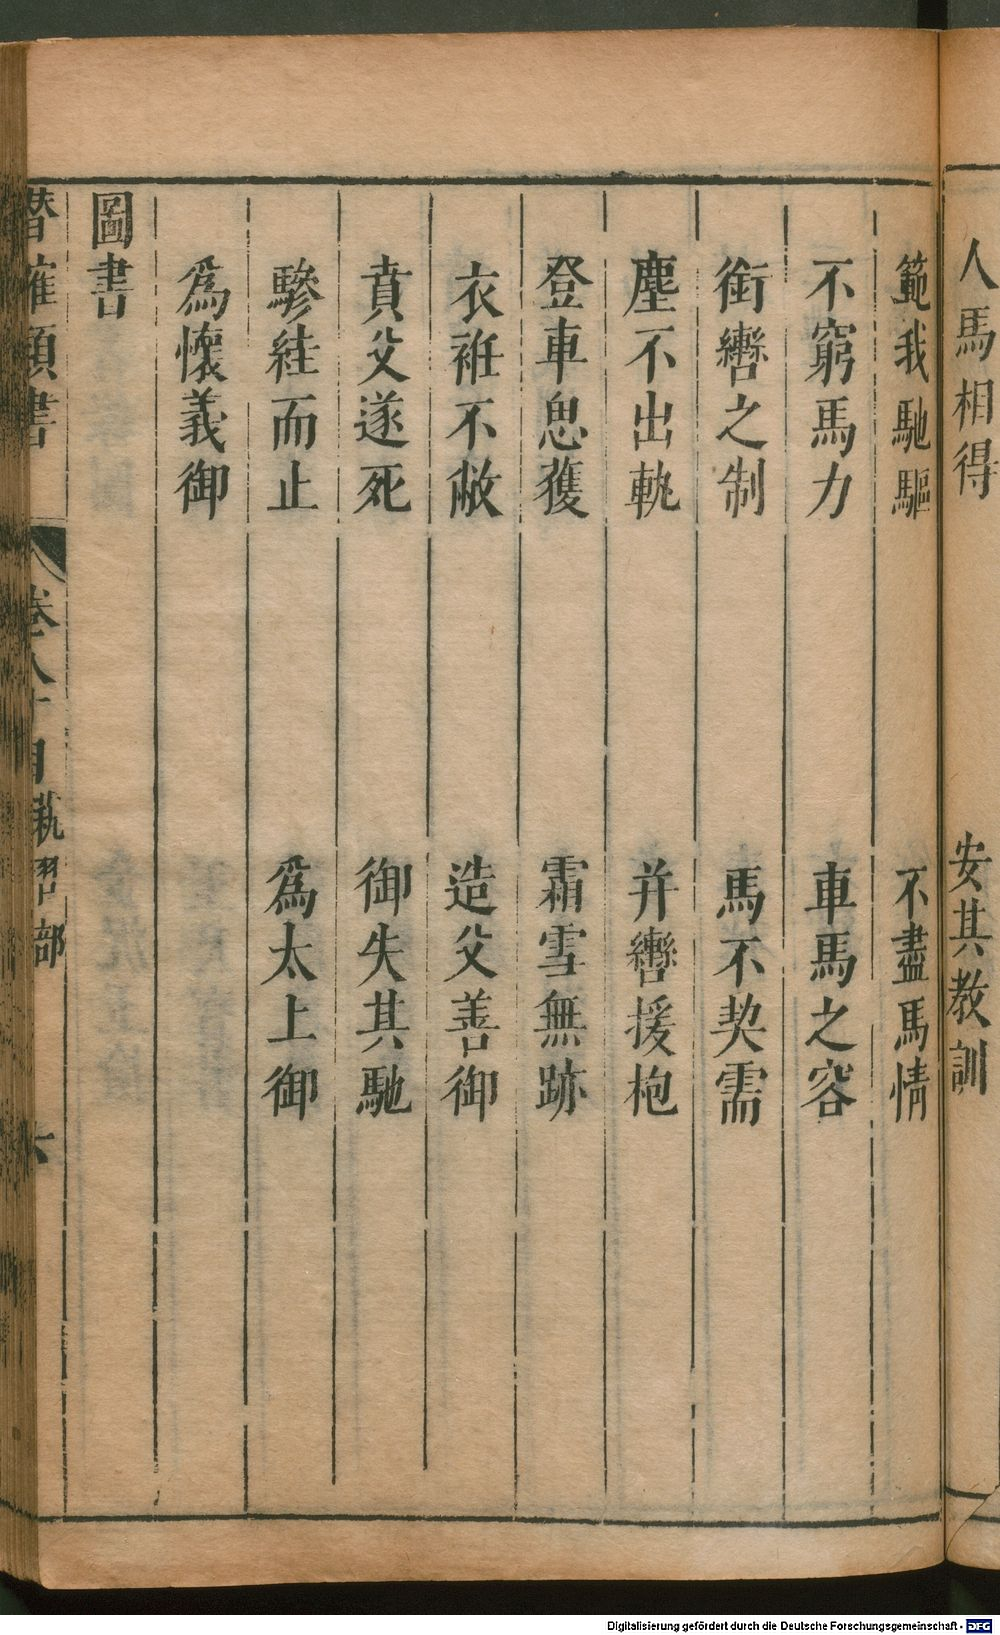 人馬相得　安其教訓
範我馳驅　不盡馬情
不窮馬力　車馬之容
銜轡之制　馬不契需
塵不出軌　并轡援枹
登車思獲　霜雪無跡
衣袵不敝　造父善御
賁父遂死　御失其馳
驂絓而止　爲太上御
爲懷義御
圖書
潛確類書　卷八十目　執習部　六
Digitalisierung gefördert durch die Deutsche Forschungsgemeinschaft - DFG